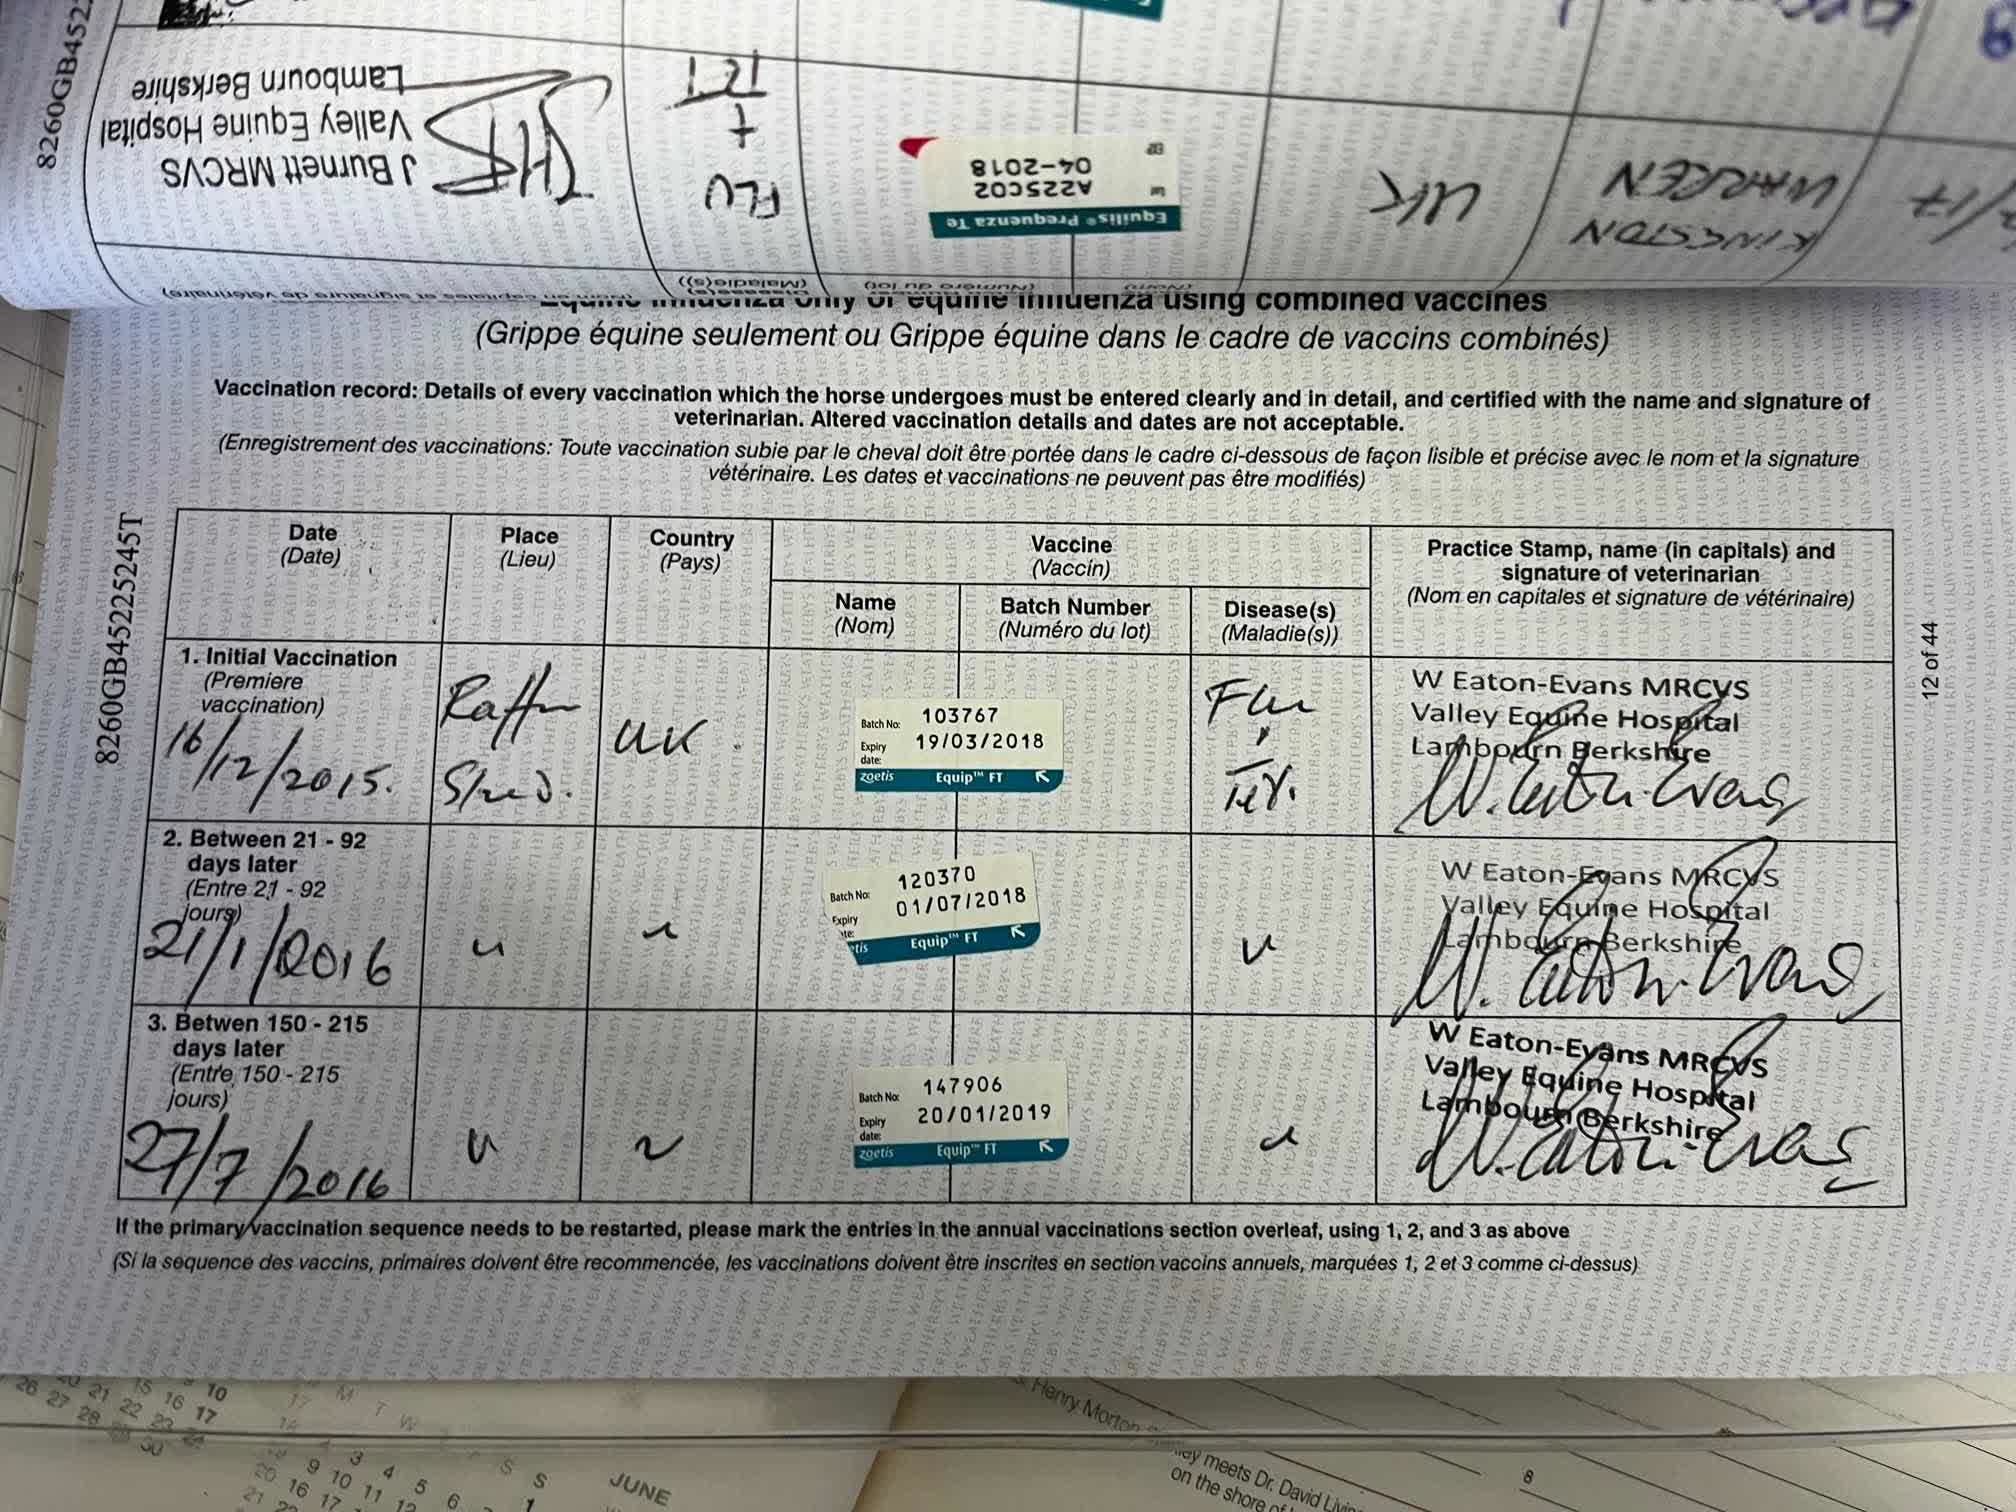 8260GB452
J Burnett MRCVS
Valley Equine Hospital
Lambourn Berkshire
FLU
+
TET
Equilis® Prequenza Te
A225C02
04-2018
UK
KINGSTON
WARREN
/17
(Maladie(s))
(Numéro du lot)
Equine influenza only or equine influenza using combined vaccines
(Grippe équine seulement ou Grippe équine dans le cadre de vaccins combinés)
Vaccination record: Details of every vaccination which the horse undergoes must be entered clearly and in detail, and certified with the name and signature of
veterinarian. Altered vaccination details and dates are not acceptable.
(Enregistrement des vaccinations: Toute vaccination subie par le cheval doit être portée dans le cadre ci-dessous de façon lisible et précise avec le nom et la signature
vétérinaire. Les dates et vaccinations ne peuvent pas être modifiés)
8260GB45225245T
Date
(Date)
Place
(Lieu)
Country
(Pays)
Vaccine
(Vaccin)
Name
(Nom)
Batch Number
(Numéro du lot)
Disease(s)
(Maladie(s))
Practice Stamp, name (in capitals) and
signature of veterinarian
(Nom en capitales et signature de vétérinaire)
1. Initial Vaccination
(Premiere
vaccination)
16/12/2015.
UK
Batch No: 103767
Expiry
date: 19/03/2018
zoetis Equip™ FT
Flu
Tet.
W Eaton-Evans MRCVS
Valley Equine Hospital
Lambourn Berkshire
W. Eaton-Evans
2. Between 21 - 92
days later
(Entre 21 - 92
jours)
21/1/2016
Batch No: 120370
Expiry 01/07/2018
Equip™ FT
W Eaton-Evans MRCVS
Valley Equine Hospital
Lambourn Berkshire
W. Eaton-Evans
3. Betwen 150 - 215
days later
(Entre 150 - 215
jours)
27/7/2016
Batch No: 147906
Expiry
date: 20/01/2019
zoetis Equip™ FT
W Eaton-Evans MRCVS
Valley Equine Hospital
Lambourn Berkshire
W. Eaton-Evans
12 of 44
If the primary vaccination sequence needs to be restarted, please mark the entries in the annual vaccinations section overleaf, using 1, 2, and 3 as above
(Si la sequence des vaccins, primaires doivent être recommencée, les vaccinations doivent être inscrites en section vaccins annuels, marquées 1, 2 et 3 comme ci-dessus)
JUNE
Henry Morton
meets Dr. David
on the shore of
8